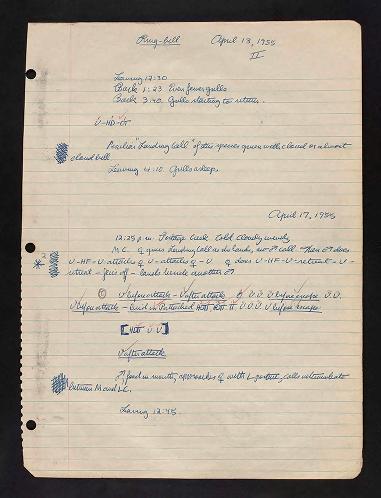 Ring-bill April 13, 1955
II
Leaving 12:30
Back 1:23 Even fewer gulls
Back 3:40. Gulls starting to return.
U-HD-UT
Peculiar "Landing Call" of this species given with closed or almost
closed bill
Leaving 4:10 Gulls asleep.
April 17, 1955
12:25 p.m. Cold cloudy windy
M.C. ♀ gives Landing Call as she lands, no ♂ call - Then ♂ does
U-HF-U-attacks ♀ U-attacks-U. ♀ does U-HF-U-retreat-U-
retreat - flies off - lands beside another ♂
U before attack - U after attack U.U. U before escape U.U.
U before attack - land in attacked U.U.U. U before escape
U U
U after attack
♂, food in mouth, approaches ♀ with posture, calls intermediate
between M and L.C.
Leaving 12:45